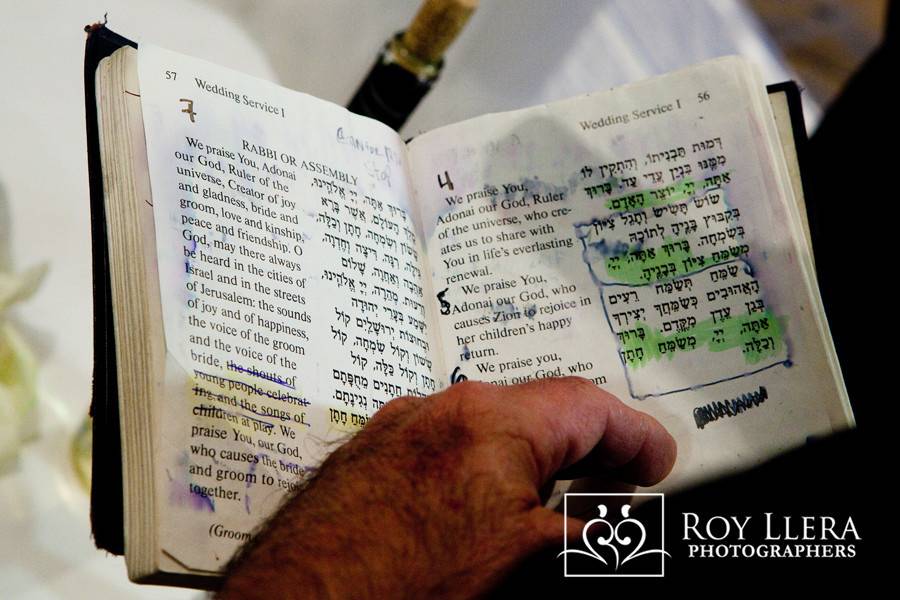 Wedding Service I 56
4
We praise You,
Adonai our God, Ruler
of the universe, who cre-
ates us to share with
You in life's everlasting
renewal.
5
We praise You,
Adonai our God, who
causes Zion to rejoice in
her children's happy
return.
6
We praise you,
nai our God, who
om
דְּמוּת תַּבְנִיתוֹ, וְהִתְקִין לוֹ
מִמֶּנּוּ בִּנְיַן עֲדֵי עַד. בָּרוּךְ
אַתָּה, יְיָ, יוֹצֵר הָאָדָם.
שׂוֹשׂ תָּשִׂישׂ וְתָגֵל צִיּוֹן
בְּקִבּוּץ בָּנֶיהָ לְתוֹכָהּ
בְּשִׂמְחָה. בָּרוּךְ אַתָּה, יְיָ,
מְשַׂמֵּחַ צִיּוֹן בְּבָנֶיהָ.
שַׂמֵּחַ תְּשַׂמַּח רֵעִים
הָאֲהוּבִים כְּשַׂמֵּחֲךָ יְצִירְךָ
בְּגַן עֵדֶן מִקֶּדֶם. בָּרוּךְ
אַתָּה, יְיָ, מְשַׂמֵּחַ חָתָן
וְכַלָּה.
57 Wedding Service I
7
RABBI OR ASSEMBLY
We praise You, Adonai
our God, Ruler of the
universe, Creator of joy
and gladness, bride and
groom, love and kinship,
peace and friendship. O
God, may there always
be heard in the cities of
Israel and in the streets
of Jerusalem: the sounds
of joy and of happiness,
the voice of the groom
and the voice of the
bride, the shouts of
young people celebrat-
ing, and the songs of
children at play. We
praise You, our God,
who causes the bride
and groom to rejoice
together.
(Groom
אַתָּה, יְיָ אֱלֹהֵינוּ,
הָעוֹלָם, אֲשֶׁר בָּרָא
וְשִׂמְחָה, חָתָן וְכַלָּה,
רִנָּה, דִּיצָה וְחֶדְוָה,
וְאַחֲוָה, שָׁלוֹם
מְהֵרָה, יְיָ אֱלֹהֵינוּ,
בְּעָרֵי יְהוּדָה
יְרוּשָׁלַיִם קוֹל
וְקוֹל שִׂמְחָה, קוֹל
וְקוֹל כַּלָּה, קוֹל
חֲתָנִים מֵחֻפָּתָם
חָתָן
ROY LLERA
PHOTOGRAPHERS